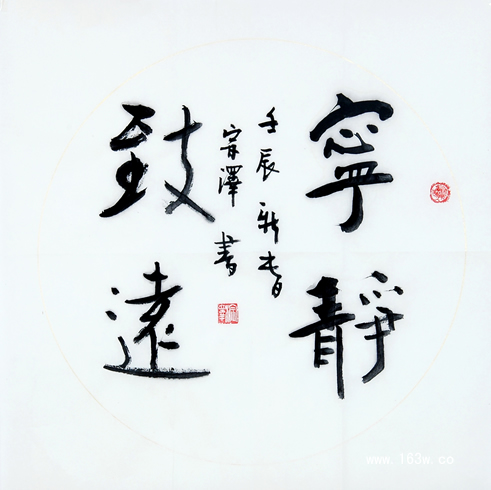 寧靜
致遠
壬辰新春
宗澤書
www.153w.co